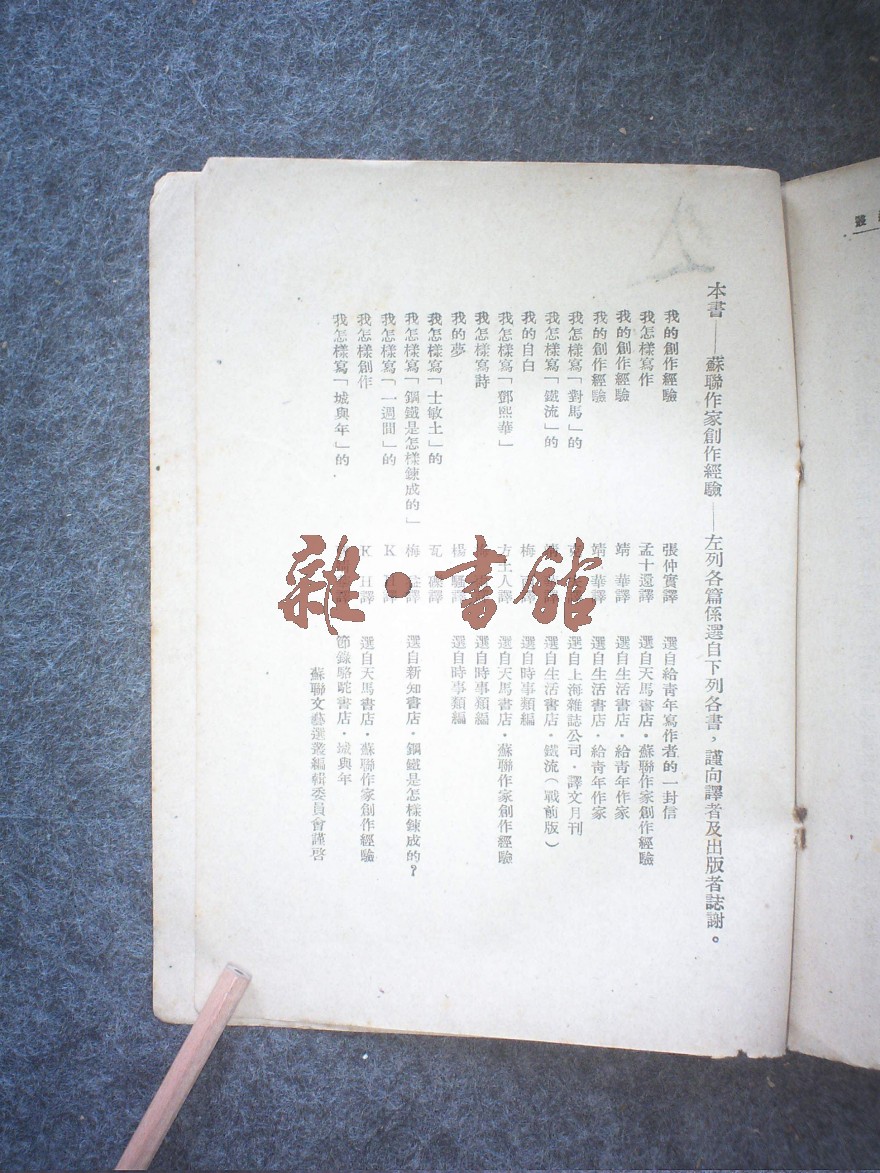 本書——蘇聯作家創作經驗——左列各篇係選自下列各書，謹向譯者及出版者誌謝。
我的創作經驗 張仲實譯 選自給青年寫作者的一封信
我怎樣寫作 孟十還譯 選自天馬書店·蘇聯作家創作經驗
我的創作經驗 靖華譯 選自生活書店·給青年作家
我的創作經驗 靖華譯 選自生活書店·給青年作家
我怎樣寫「對馬」的 選自上海雜誌公司·譯文月刊
我怎樣寫「鐵流」的 選自生活書店·鐵流（戰前版）
我的自白 梅 選自時事類編
我怎樣寫「鄧熙華」 方土人譯 選自天馬書店·蘇聯作家創作經驗
我怎樣寫詩 選自時事類編
我的夢 楊騷譯 選自時事類編
我怎樣寫「士敏土」的 瓦礫譯
我怎樣寫「鋼鐵是怎樣鍊成的」 梅 譯 選自新知書店·鋼鐵是怎樣鍊成的？
我怎樣寫「一週間」的 K H譯
我怎樣創作 K H譯 選自天馬書店·蘇聯作家創作經驗
我怎樣寫「城與年」的 節錄駱駝書店·城與年
蘇聯文藝選叢編輯委員會謹啓
叢
雜·書館